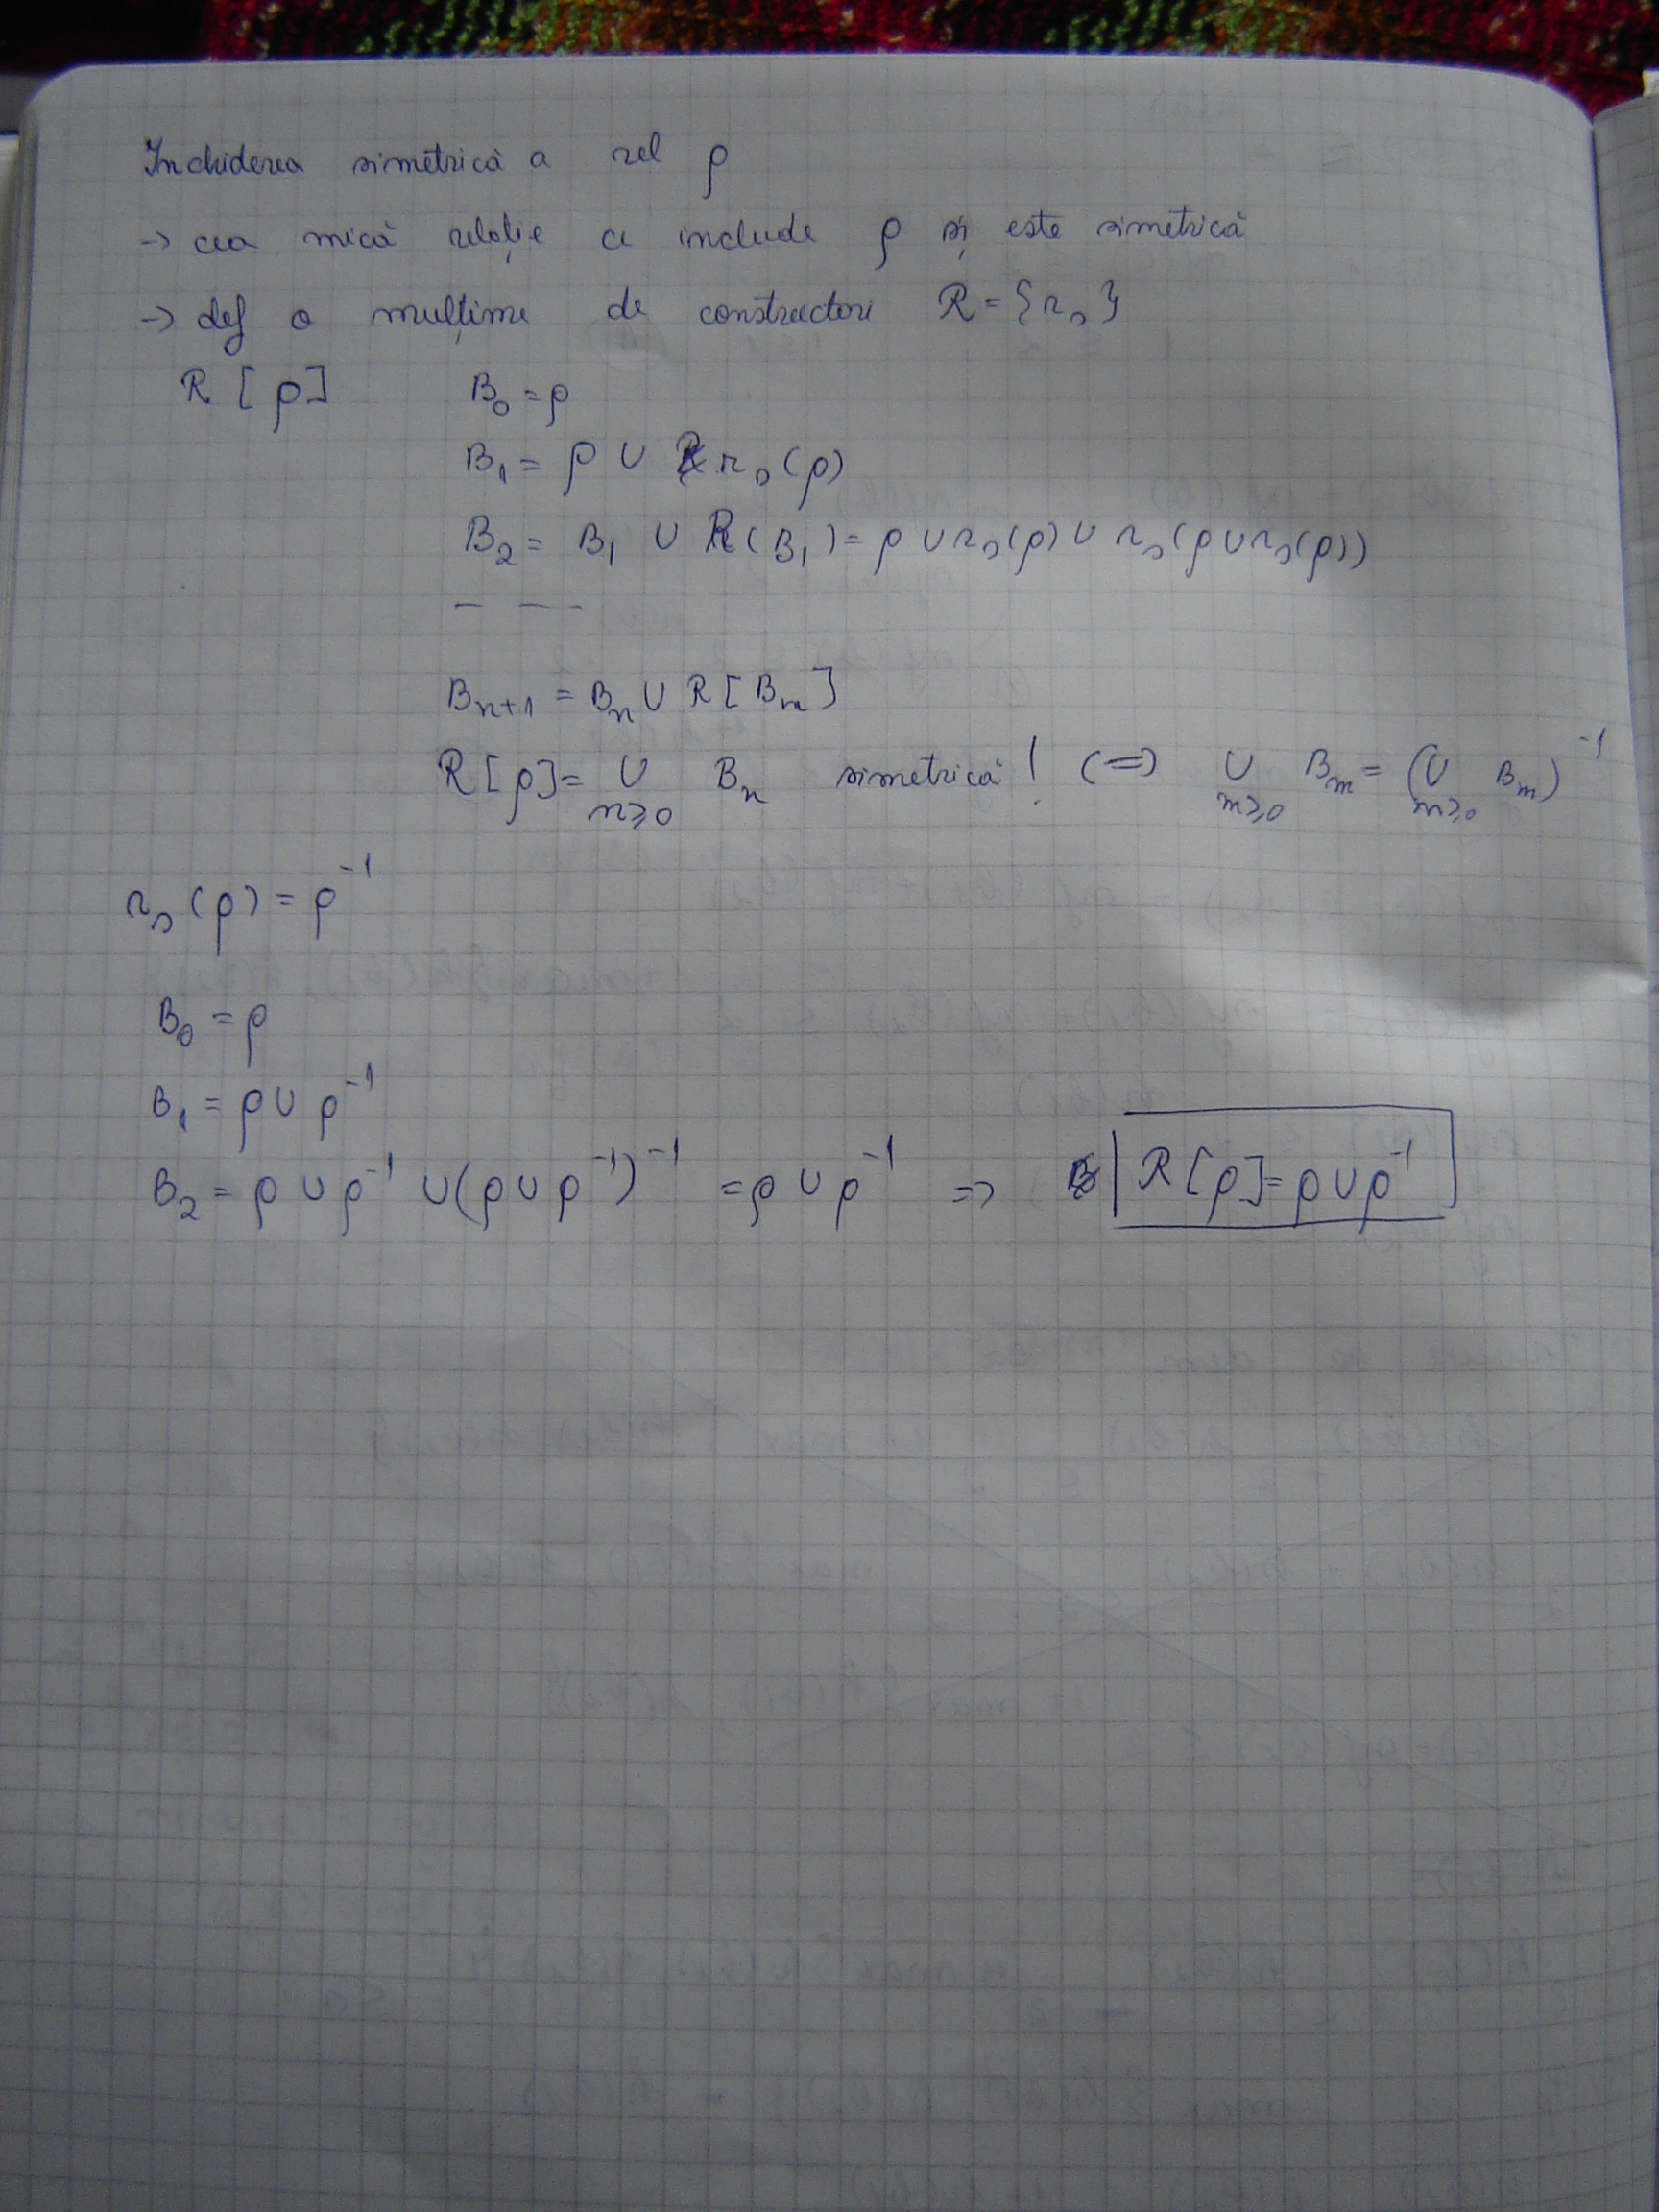 Inchiderea simetrică a rel ρ
→ cea mică relație ce include ρ și este simetrică
→ def o mulțime de constructori R = {r_s}
R[ρ] B₀ = ρ
B₁ = ρ ∪ r_s(ρ)
B₂ = B₁ ∪ R(B₁) = ρ ∪ r_s(ρ) ∪ r_s(ρ ∪ r_s(ρ))
— — -
Bₙ₊₁ = Bₙ ∪ R[Bₙ]
R[ρ] = ∪_{n≥0} Bₙ simetrică! (=) ∪_{m≥0} Bₘ = (∪_{m≥0} Bₘ)⁻¹
r_s(ρ) = ρ⁻¹
B₀ = ρ
B₁ = ρ ∪ ρ⁻¹
B₂ = ρ ∪ ρ⁻¹ ∪ (ρ ∪ ρ⁻¹)⁻¹ = ρ ∪ ρ⁻¹ => R[ρ] = ρ ∪ ρ⁻¹